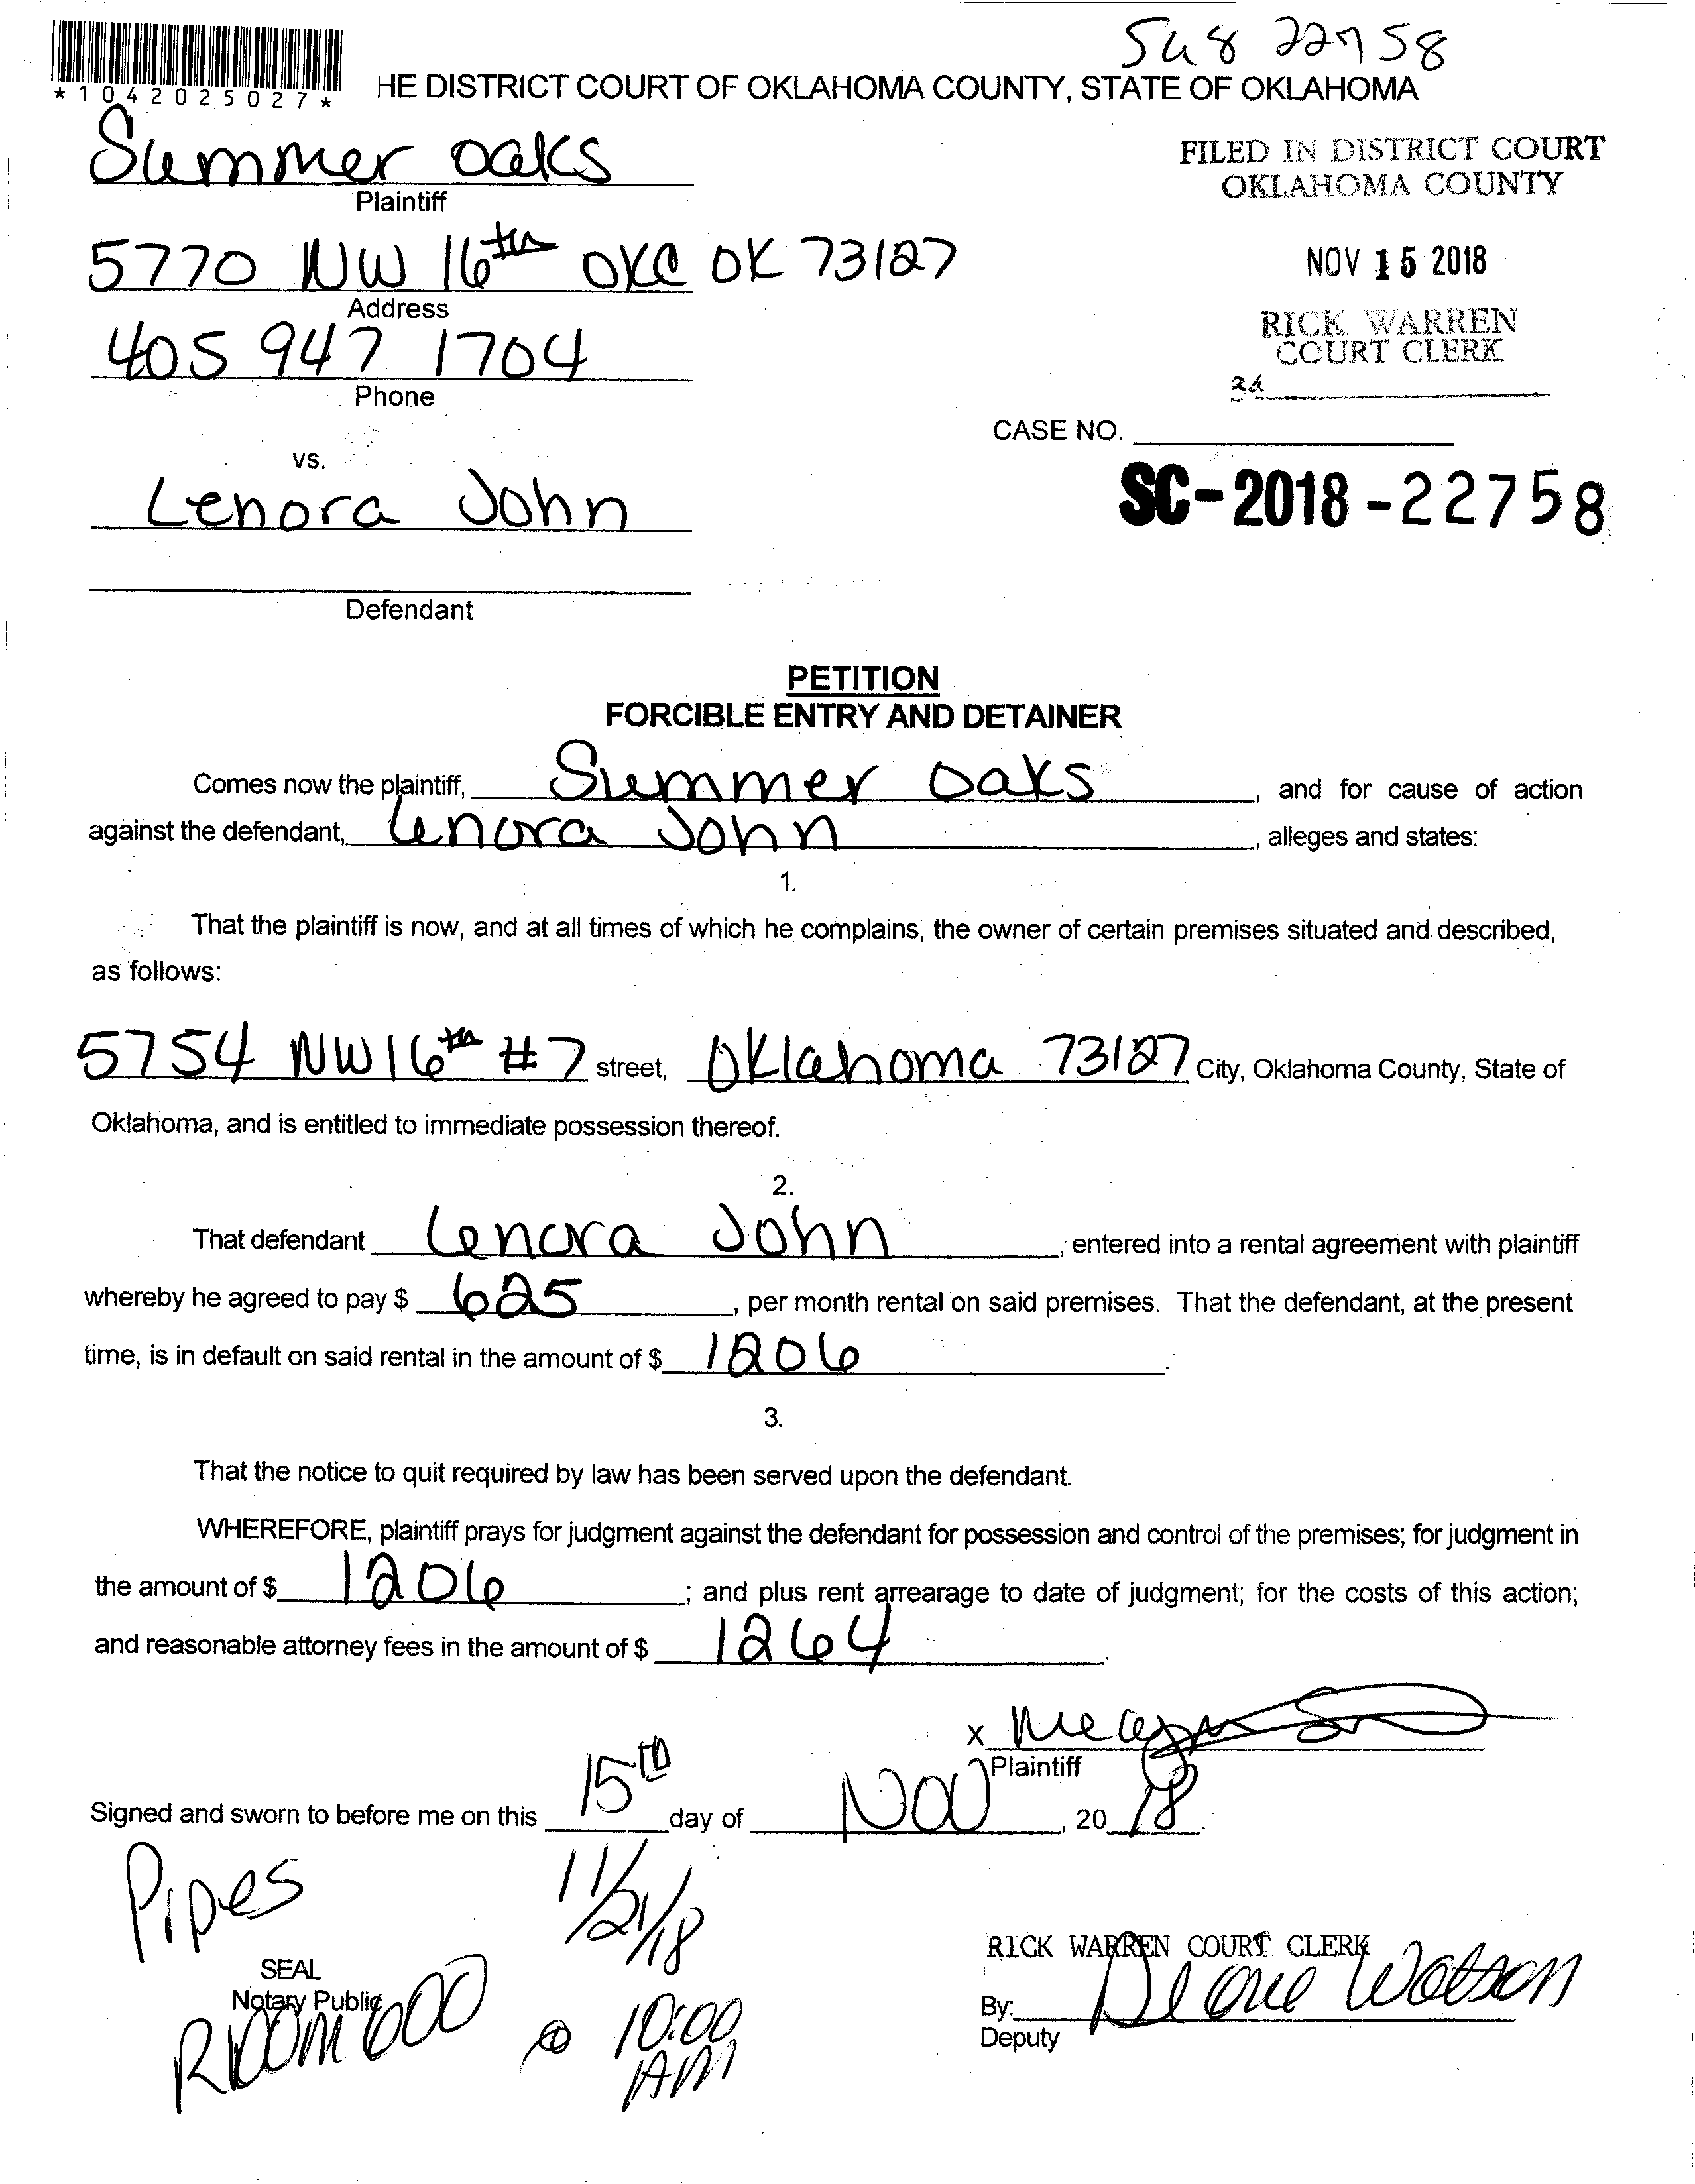 Su8 22758
*1042025027*
HE DISTRICT COURT OF OKLAHOMA COUNTY, STATE OF OKLAHOMA
Summer oaks
Plaintiff
FILED IN DISTRICT COURT
OKLAHOMA COUNTY
5770 NW 16th OKC OK 73127
Address
NOV 15 2018
405 947 1704
Phone
RICK WARREN
COURT CLERK
CASE NO.
vs.
Lenora John
SC-2018-22758
Defendant
PETITION
FORCIBLE ENTRY AND DETAINER
Comes now the plaintiff, Summer oaks, and for cause of action
against the defendant, Lenora John, alleges and states:
1.
That the plaintiff is now, and at all times of which he complains, the owner of certain premises situated and described,
as follows:
5754 NW 16th #7 street, Oklahoma 73127 City, Oklahoma County, State of
Oklahoma, and is entitled to immediate possession thereof.
2.
That defendant Lenora John, entered into a rental agreement with plaintiff
whereby he agreed to pay $ 625, per month rental on said premises. That the defendant, at the present
time, is in default on said rental in the amount of $ 1206.
3.
That the notice to quit required by law has been served upon the defendant.
WHEREFORE, plaintiff prays for judgment against the defendant for possession and control of the premises; for judgment in
the amount of $ 1206; and plus rent arrearage to date of judgment; for the costs of this action;
and reasonable attorney fees in the amount of $ 1264.
X
Plaintiff
Signed and sworn to before me on this 15th day of Nov, 20 18.
Pipes 11/21/18
SEAL
Notary Public
RICK WARREN COURT CLERK
Room 600 @ 10:00 AM
By: Diane Watson
Deputy